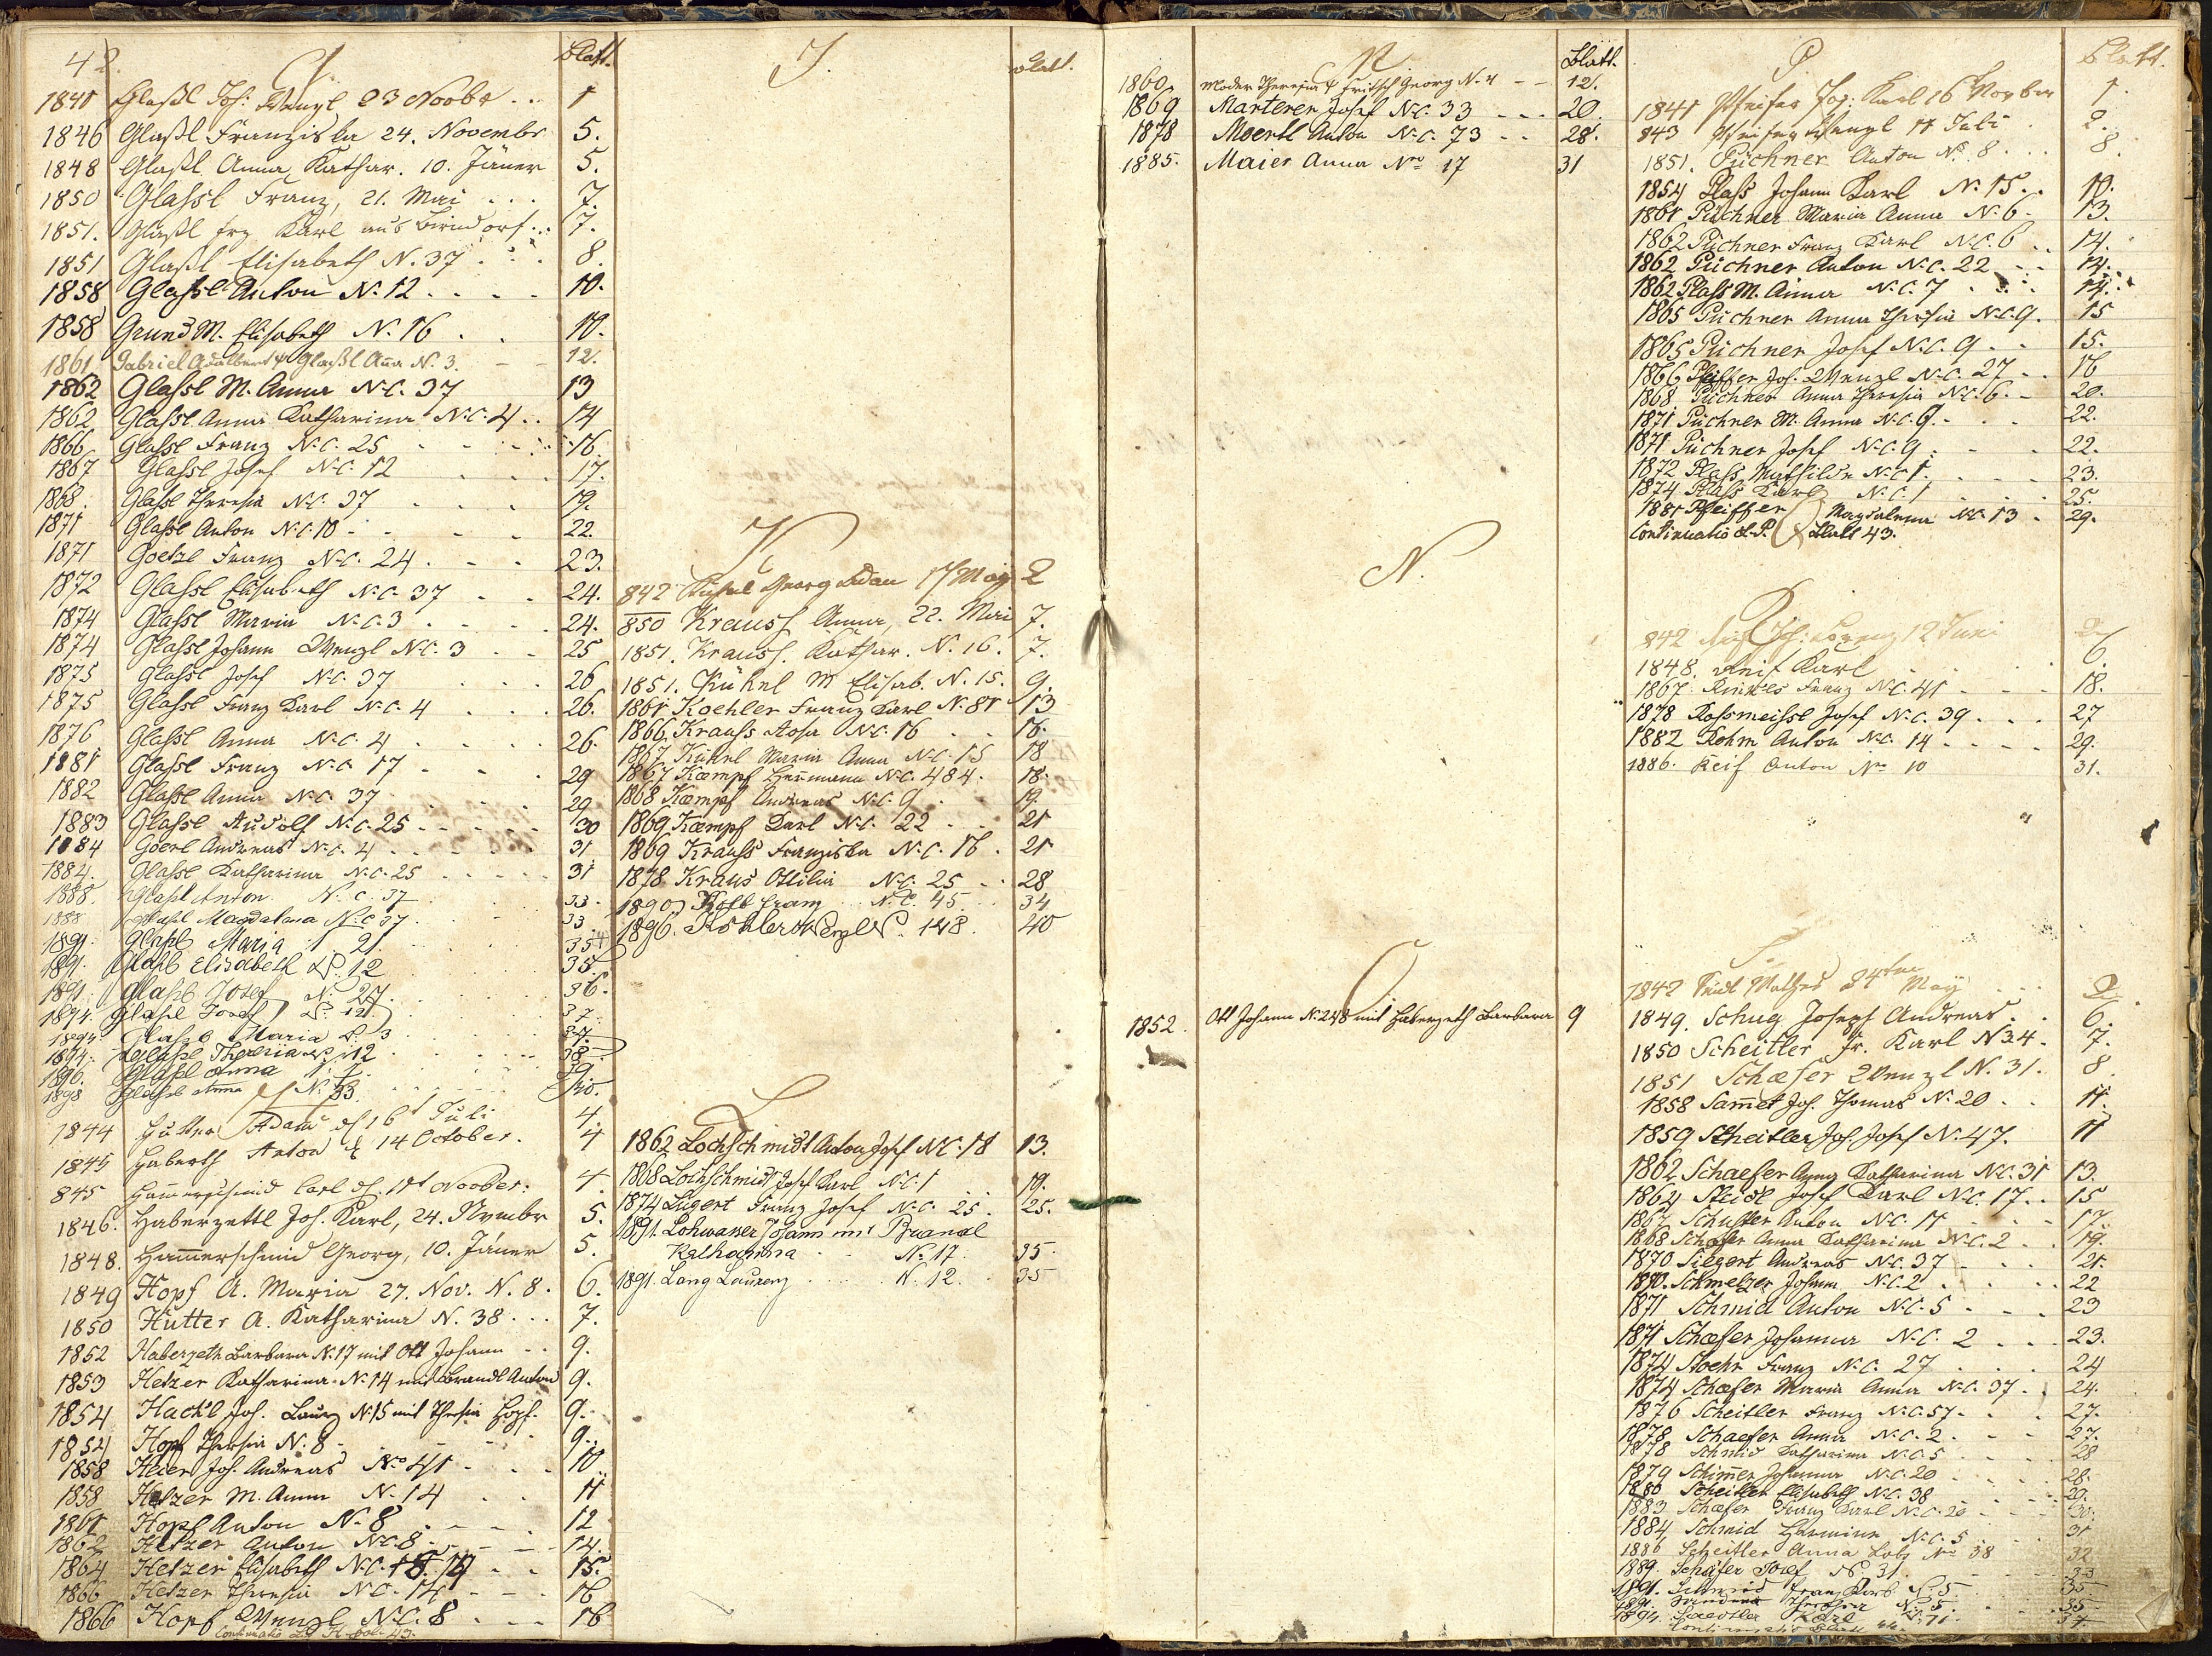 42 G Blatt.
1841 Glaßl Joh: Wenzl 23 Novbr .. 1
1846 Glaßl Franziska 24. Novembr 5.
1848 Glaßl Anna, Kathar. 10. Jäner 5.
1850 Glaßl Franz, 21. Mai ... 7.
1851. Glaßl frz Karl aus 7.
1851 Glaßl Elisabeth N. 37 ... 8.
1858 Glaßl Anton N. 12 .... 10.
1858 Grund M. Elisabeth N. 16 .. 10.
1861 Gabriel Adalbert & Glaßl Anna N. 3. 12.
1862 Glaßl M. Anna N.C. 37 13
1862 Glaßl Anna Katharina N.C. 4 .. 14
1866 Glaßl Franz N.C. 25 16.
1867 Glaßl Josef N.C. 12 17.
1868. Glaßl Theresia N.C. 37 19.
1871 Glaßl Anton N.C. 10 22.
1871 Goetzl Franz N.C. 24 23.
1872 Glaßl Elisabeth N.C. 37 24.
1874 Glaßl Maria N.C. 3 24.
1874 Glaßl Johann Wenzl N.C. 3 25
1875 Glaßl Josef N.C. 37 26
1875 Glaßl Franz Karl N.C. 4 26.
1876 Glaßl Anna N.C. 4 26.
1881 Glaßl Franz N.C. 17 29
1882 Glaßl Anna N.C. 37 29
1883 Glaßl Rudolf N.C. 25 30
1884 Goerl Andreas N.C. 4 31
1884. Glaßl Katharina N.C. 25 31
1888. Glaßl Anton N.C. 37 33.
1888 Glaßl Magdalena N.C. 37. 33
1891. Glaßl Maria 2 35
1891. Glaßl Elisabeth N. 12 35.
1891. Glaßl Josef N. 27. 36.
1894. Glaßl Josef N. 12 37.
1894 Glaßl Maria N. 3 37.
1894. Glaßl Theresia N. 12 38
1896. Glaßl Anna 39
1898 Glaßl Anna N. 33. 40.
1844 Hutter Adam 16 Juli 4.
1845 Haberth Anton 14 October. 4
845 Hammerschmid Carl Novber: 4.
1846. Haberzettl Joh. Karl, 24. Nvmbr 5.
1848. Hammerschmid Georg, 10. Jäner 5.
1849 Hopf A. Maria 27. Nov. N. 8. 6.
1850 Hutter A. Katharina N. 38 ... 7.
1852 Haberzeth Barbara N. 17 mit Ott Johann .. 9.
1853 Hetzer Katharina N. 14 mit Brandl Anton 9.
1854 Hackl Joh. Laurz N. 15 mit Thesia Hopf. 9.
1854 Hopf Thersia N. 8 9.
1858 Heier Joh. Andreas No 41 10
1858 Hetzer M. Anna N. 14 11
1861 Hopf Anton N. 8 12
1862 Hetzer Anton N.C. 8 14.
1864 Hetzer Elisabeth N.C. 14 15.
1866 Hetzer Theresia N.C. 14 16
1866 Hopf Wenzl N.C. 8 16
Continuatio H 43.
J. Blatt.
K
842 Georg Adam 17 May 2
850 Krauss Anna, 22. Mai 7.
1851. Krauss. Kathar. N. 16. 7.
1851. Kühnl M Elisab. N. 15. 9.
1861 Koehler Franz Karl N. 81 13
1866 Krauss Rosa N.C. 16 16.
1867 Kühnl Maria Anna N.C. 15 18
1867 Kæmpf Hermann N.C. 484. 18.
1868 Kæmpf Andreas N.C. 9 19.
1869 Kæmpf Karl N.C. 22 21
1869 Krauss Franziska N.C. 16. 21
1878 Kraus Ottilia N.C. 25 28
1890 Kolb Franz N.C. 45. 34
1896. Köhler Wenzl N. 148. 40
L
1862 Lochschmidt Anton Josef N.C. 18 13.
1868 Lochschmidt Josef Karl N.C. 1 19.
1874 Lugert Franz Josef N.C. 25. 25.
1891. Lohwasser Johann mit Brandl
Katharina N. 17. 35.
1891. Lang Laurenz N. 12. 35
M Blatt.
1860 Moder Theresia & Fritsch Georg N. 4 12.
1869 Marterer Josef N.C. 33 20.
1878 Moertl Anton N.C. 73 28.
1885. Maier Anna Nro 17 31
N.
O
1852. Ott Johann N. 248 mit Haberzeth Barbara 9
P Blatt.
1841 Pfeifer Joh: Karl 16 Novber 1.
843 Pfeifer Wenzl 11 Juli 2.
1851. Püchner Anton No. 8 8.
1854 Plass Johann Karl N. 15 10.
1861 Püchner Maria Anna N. 6. 13.
1862 Püchner Franz Karl N.C. 6 14.
1862 Püchner Anton N.C. 22 14.
1862 Plass M. Anna N.C. 7 14.
1865 Püchner Anna Thresia N.C. 9. 15
1865 Püchner Josef N.C. 9 15.
1866 Pfeiffer Joh. Wenzl N.C. 27 16
1868 Püchner Anna Theresia N.C. 6. 20.
1871 Püchner M. Anna N.C. 9. 22.
1871 Püchner Josef N.C. 9 22.
1872 Plass Mathilde N.C. 1. 23.
1874 Plass Karl N.C. 1 25.
1881 Pfeiffer Magdalena N.C. 13 29.
Continuatio L. P. Blatt 43.
R
842 Reif Joh: Lorenz 12 Juni 2
1848. Reif Karl 6.
1867. Franz N.C. 41 18.
1878 Rossmeissl Josef N.C. 39 27
1882 Rohm Anton N.C. 14 29.
1886. Reif Anton Nro 10 31.
S.
1842 Mathes 24ten May 2
1849. Schug Joseph Andreas 6.
1850 Scheitler Fr. Karl N 34. 7.
1851 Schæfer Wenzl N. 31. 8.
1858 Sam̅et Joh. Thomas N. 20 11.
1859 Scheitler Joh. Josef N. 47. 11
1862 Schaefer Anna Katharina N.C. 31 13.
1864 Steidl Josef Karl N.C. 17. 15
1867 Schuster Anton N.C. 11 17.
1868 Schæfer Anna Katharina N.C. 2 19.
1870 Siegert Andreas N.C. 37 21.
1870. Schmelzer Johann N.C. 2 22
1871 Schmid Anton N.C. 5 23
1871 Schæfer Johanna N.C. 2 23.
1874 Stoehr Franz N.C. 27 24
1874 Schæfer Maria Anna N.C. 37. 24.
1876 Scheitler Franz N.C. 57. 27.
1878 Schaefer Anna N.C. 2 27.
1878 Schmid Katharina N.C. 5 28
1879 Schimmer Johanna N.C. 20 28.
1880 Scheitler Elisabeth N.C. 38 29.
1883 Schæfer Franz Karl N.C. 20 30.
1884 Schmid Hermine N.C. 5 31
1886 Scheitler Anna Nro 38 32
1889. Schäfer Josef N. 31. 33
1891. Schmid Franz Karl N. 5 35
1891. Theresia N. 5. 35
1894. Karl N. 71. 37.
Continuatio Blatt